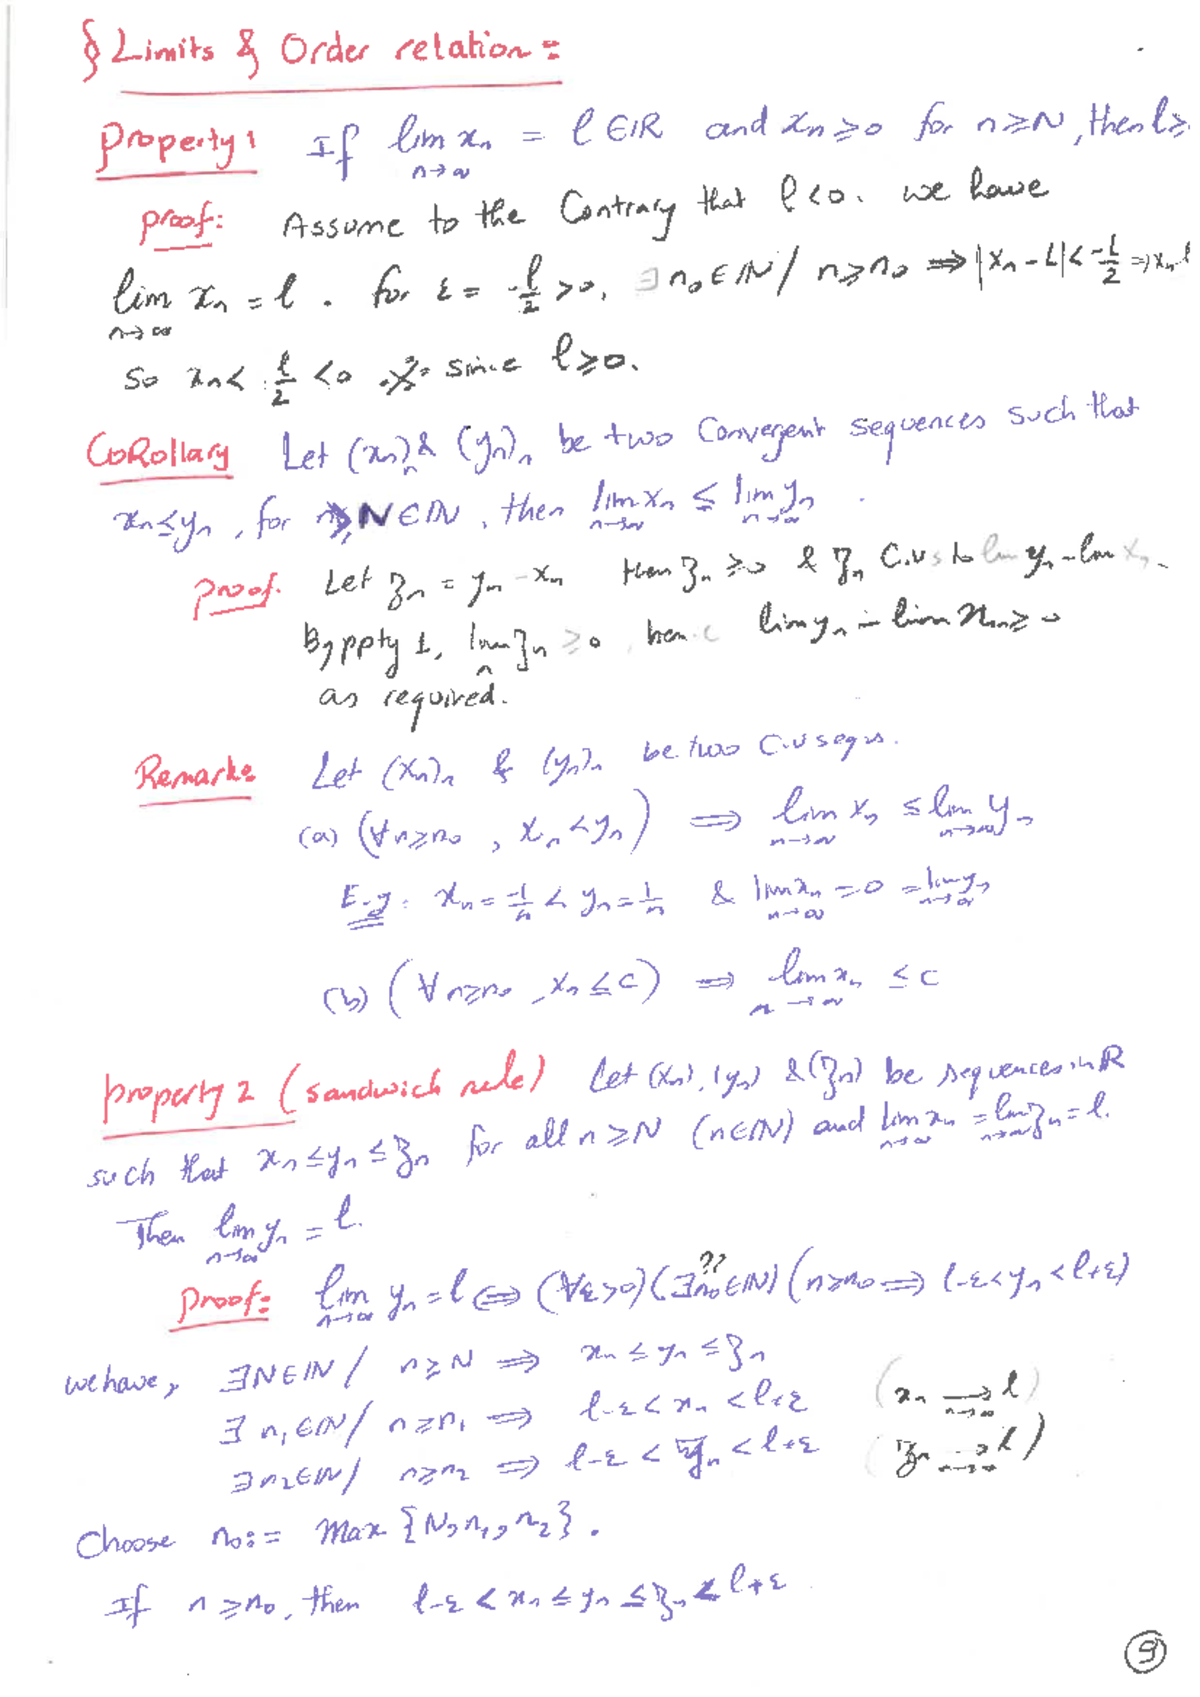 § Limits & Order relation:
Property 1 If lim xₙ = l ∈ ℝ and xₙ ≥ 0 for n ≥ N, then l ≥
n→∞
proof: Assume to the Contrary that l < 0. we have
lim xₙ = l. for ε = -l/2 > 0, ∃ n₀ ∈ ℕ / n ≥ n₀ ⟹ |xₙ - L| < -L/2 ⟹ xₙ
n→∞
So xₙ < l/2 < 0 ※ since l ≥ 0.
CoRollary Let (xₙ)ₙ & (yₙ)ₙ be two Convergent sequences such that
xₙ ≤ yₙ, for n ≥ N ∈ ℕ, then lim xₙ ≤ lim yₙ.
n→∞ n→∞
proof. Let zₙ = yₙ - xₙ then zₙ ≥ 0 & zₙ C.v s to lim yₙ - lim xₙ.
By ppty 1, lim zₙ ≥ 0, hence lim yₙ - lim xₙ ≥ 0
n
as required.
Remark: Let (xₙ)ₙ & (yₙ)ₙ be two C.v seqs.
(a) (∀ n ≥ n₀, xₙ < yₙ) ⟹ lim xₙ ≤ lim yₙ
n→∞ n→∞
E.g: xₙ = -1/n < yₙ = 1/n & lim xₙ = 0 = lim yₙ
n→∞ n→∞
(b) (∀ n ≥ n₀, xₙ ≤ c) ⟹ lim xₙ ≤ c
n→∞
property 2 (sandwich rule) Let (xₙ), (yₙ) & (zₙ) be sequences in ℝ
such that xₙ ≤ yₙ ≤ zₙ for all n ≥ N (n ∈ ℕ) and lim xₙ = lim zₙ = l.
n→∞ n→∞
Then lim yₙ = l.
n→∞
??
proof: lim yₙ = l ⟺ (∀ε>0)(∃n₀∈ℕ)(n ≥ n₀ ⟹ l-ε < yₙ < l+ε)
n→∞
we have, ∃N∈ℕ / n ≥ N ⟹ xₙ ≤ yₙ ≤ zₙ
∃ n₁∈ℕ / n ≥ n₁ ⟹ l-ε < xₙ < l+ε (xₙ ⟶ l)
n→∞
∃ n₂∈ℕ / n ≥ n₂ ⟹ l-ε < zₙ < l+ε (zₙ ⟶ l)
n→∞
Choose n₀ := Max {N, n₁, n₂}.
If n ≥ n₀, then l-ε < xₙ ≤ yₙ ≤ zₙ < l+ε
9